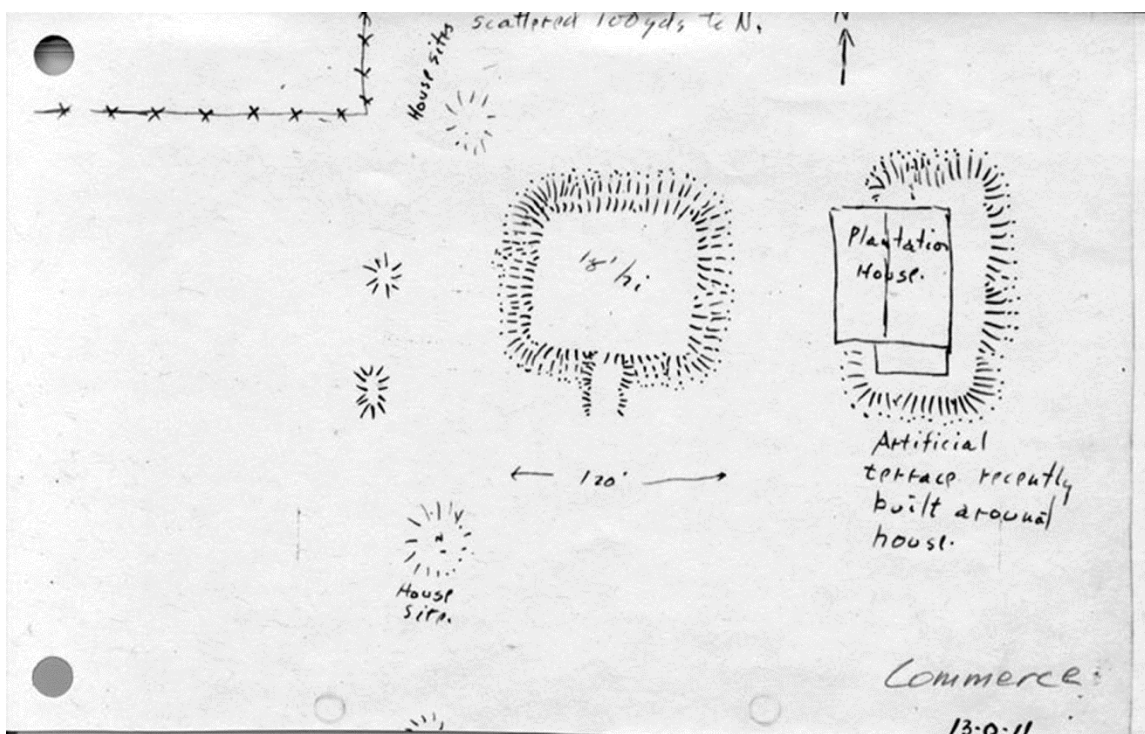 scattered 100 yds to N.
N
House sites
Plantation
House.
120'
Artificial
terrace recently
built around
house.
House
site.
Commerce
13-0-11